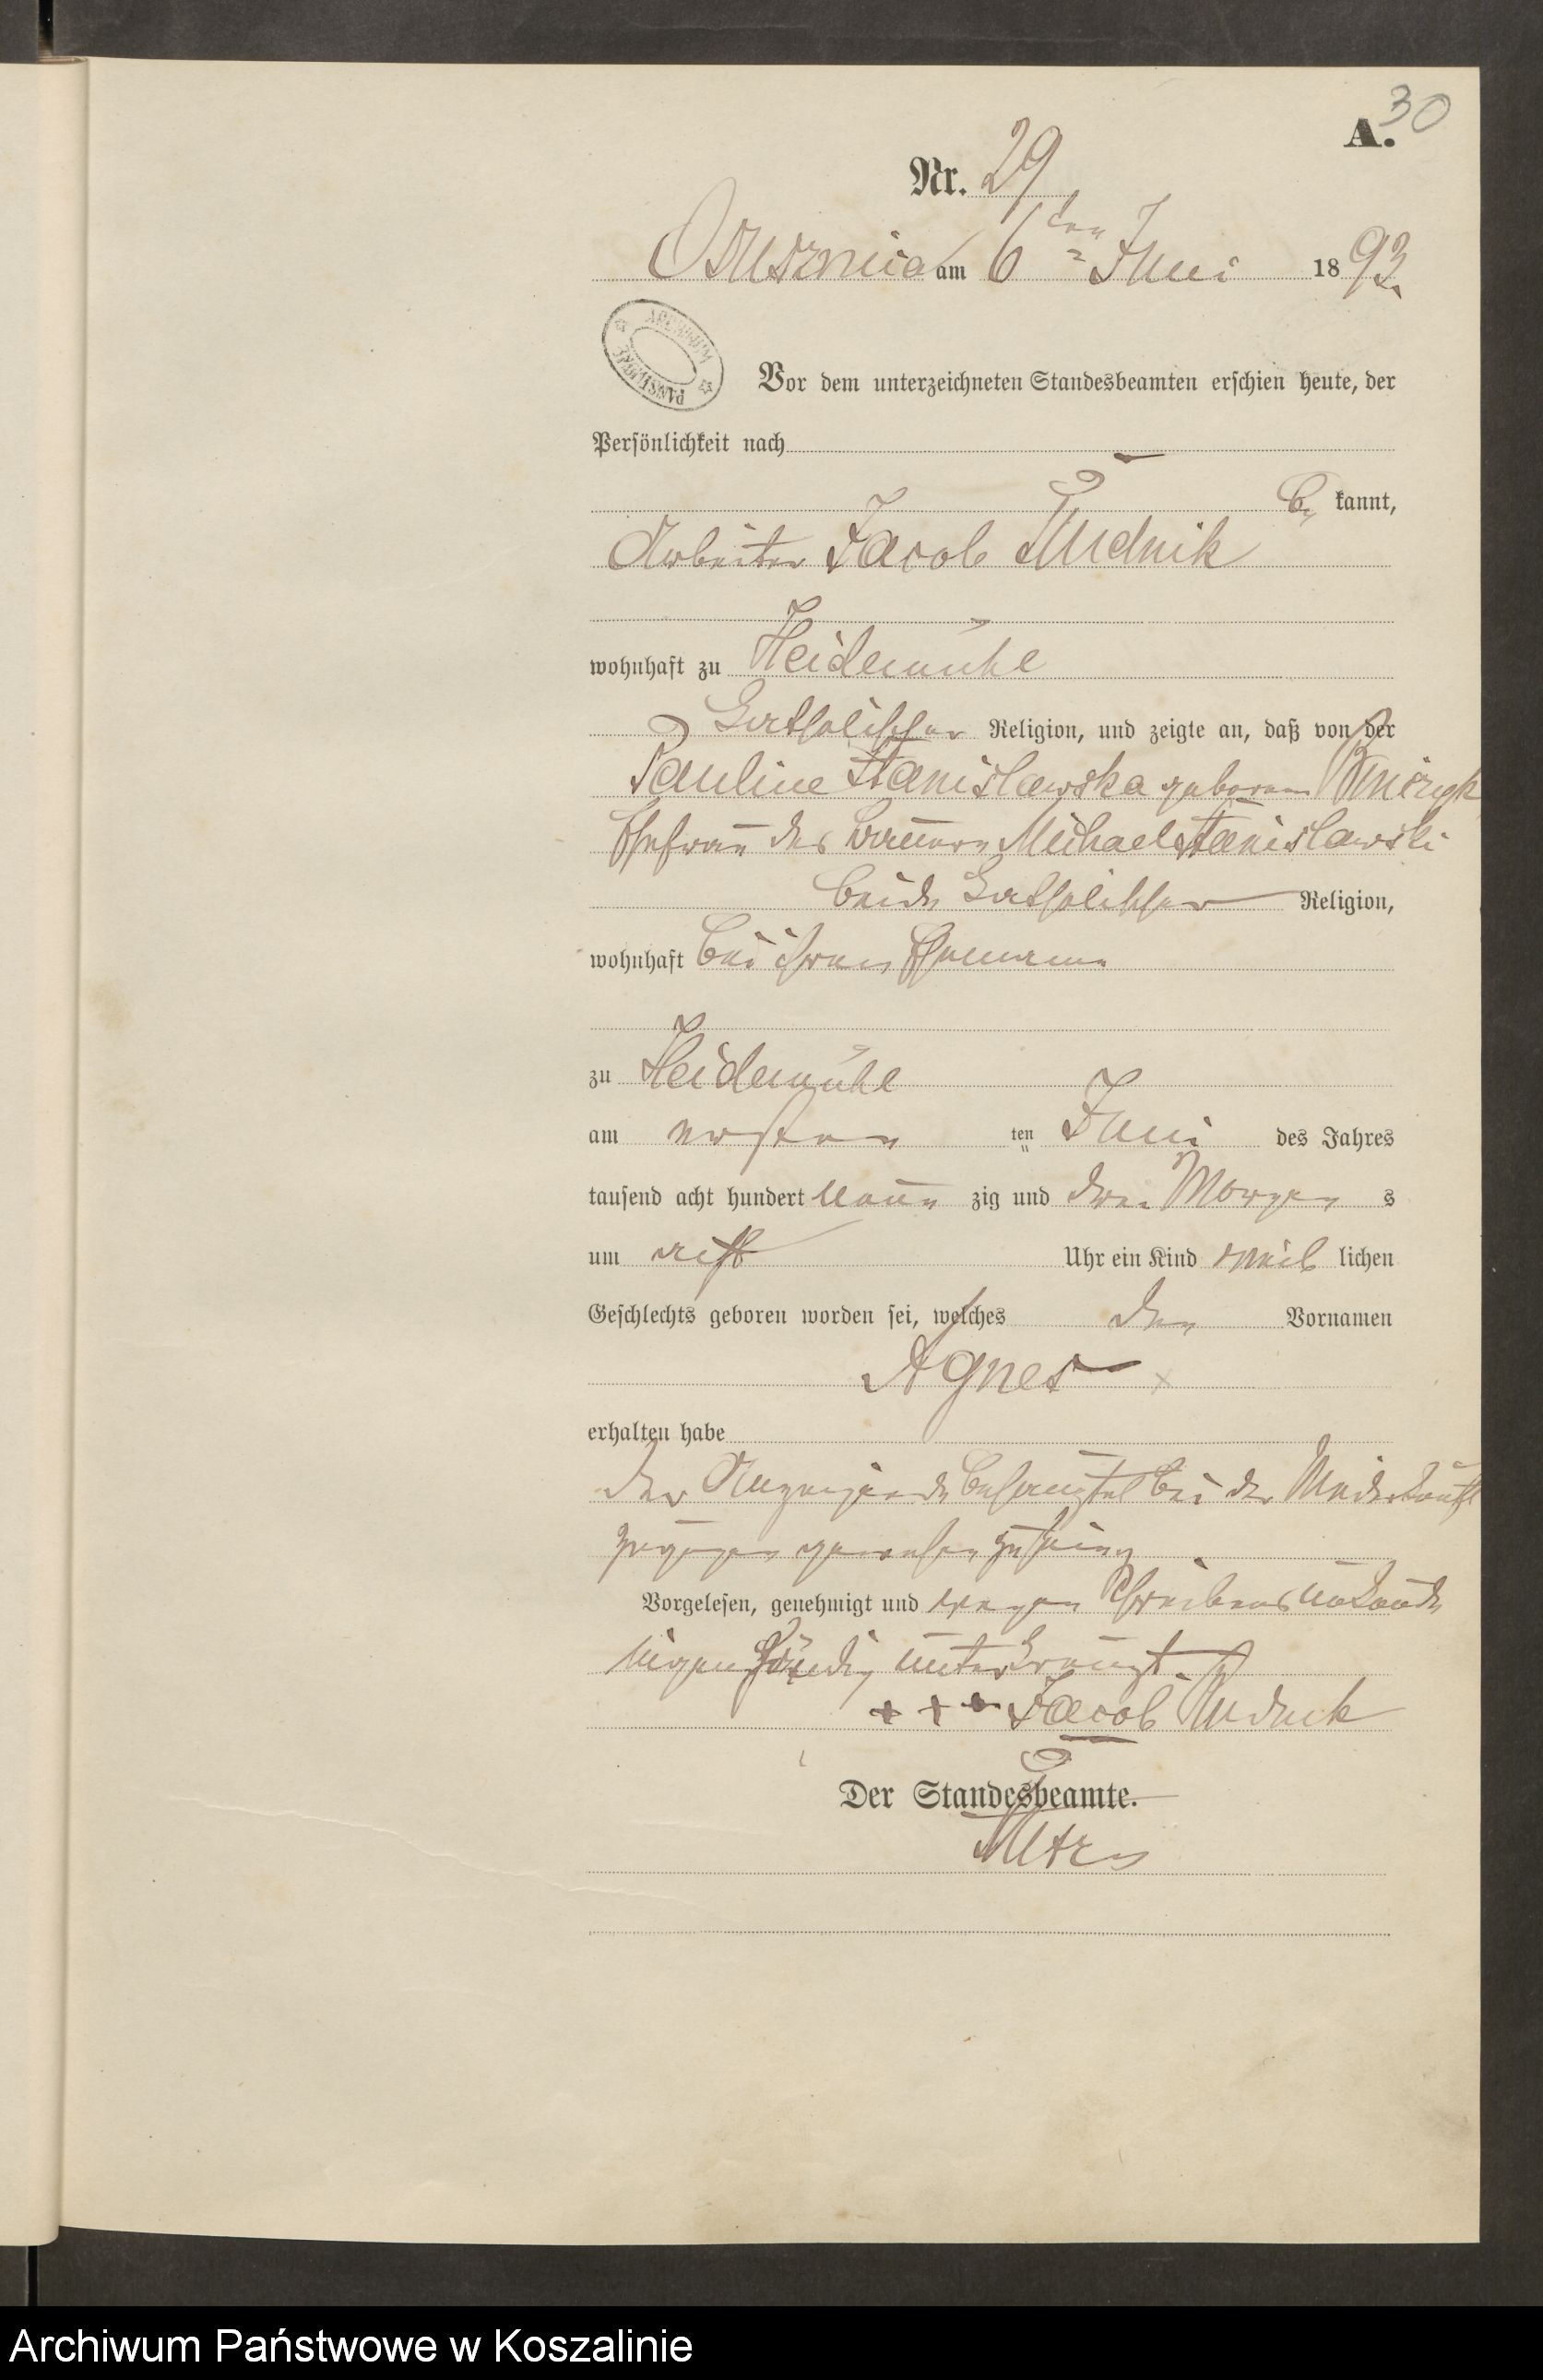 30
A.
Nr. 29
Ossusznica am 6ten Juni 1893.
ARCHIWUM PAŃSTWOWE
Vor dem unterzeichneten Standesbeamten erschien heute, der
Persönlichkeit nach
be kannt,
Arbeiter Jacob Rudnik
wohnhaft zu Heidemühle
katholischer Religion, und zeigte an, daß von der
Pauline Stanislawska geborene
Ehefrau des Michael Stanislawski
beide katholischer Religion,
wohnhaft bei ihrem Ehemann
zu Heidemühle
am ersten ten Juni des Jahres
tausend acht hundert neun zig und drei Morgen s
um acht Uhr ein Kind weib lichen
Geschlechts geboren worden sei, welches den Vornamen
Agnes
erhalten habe
der Anzeigende behauptet bei der Niederkunft
zugegen gewesen zu sein
Vorgelesen, genehmigt und wegen Schreibensunkunde
eigenhändig unterkreuzt.
+ + + Jacob Rudnik
Der Standesbeamte.
Archiwum Państwowe w Koszalinie